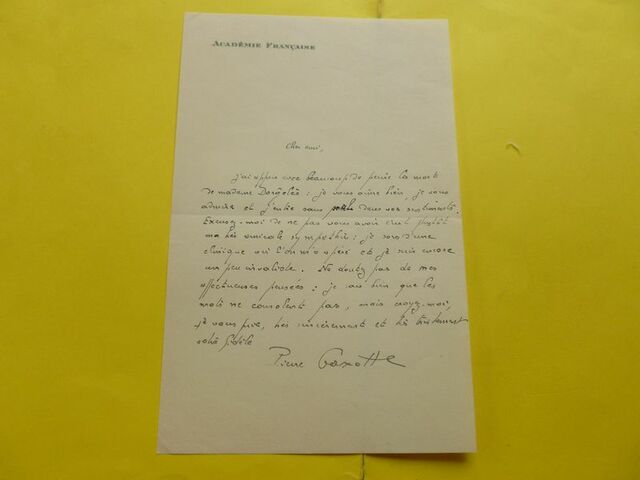 ACADÉMIE FRANÇAISE
Cher ami,
J'ai appris avec beaucoup de peine la mort
de madame Dorgelès : je vous aime bien, je vous
admire et j'entre sans dans vos sentiments.
Excusez-moi de ne pas vous avoir écrit plus tôt
ma très amicale sympathie : je sors d'une
clinique où l'on m'a opéré et je suis encore
un peu invalide. Ne doutez pas de mes
affectueuses pensées : je sais bien que les
mots ne consolent pas, mais croyez-moi,
je vous prie, très sincèrement et très tristement
votre fidèle
Pierre Gaxotte